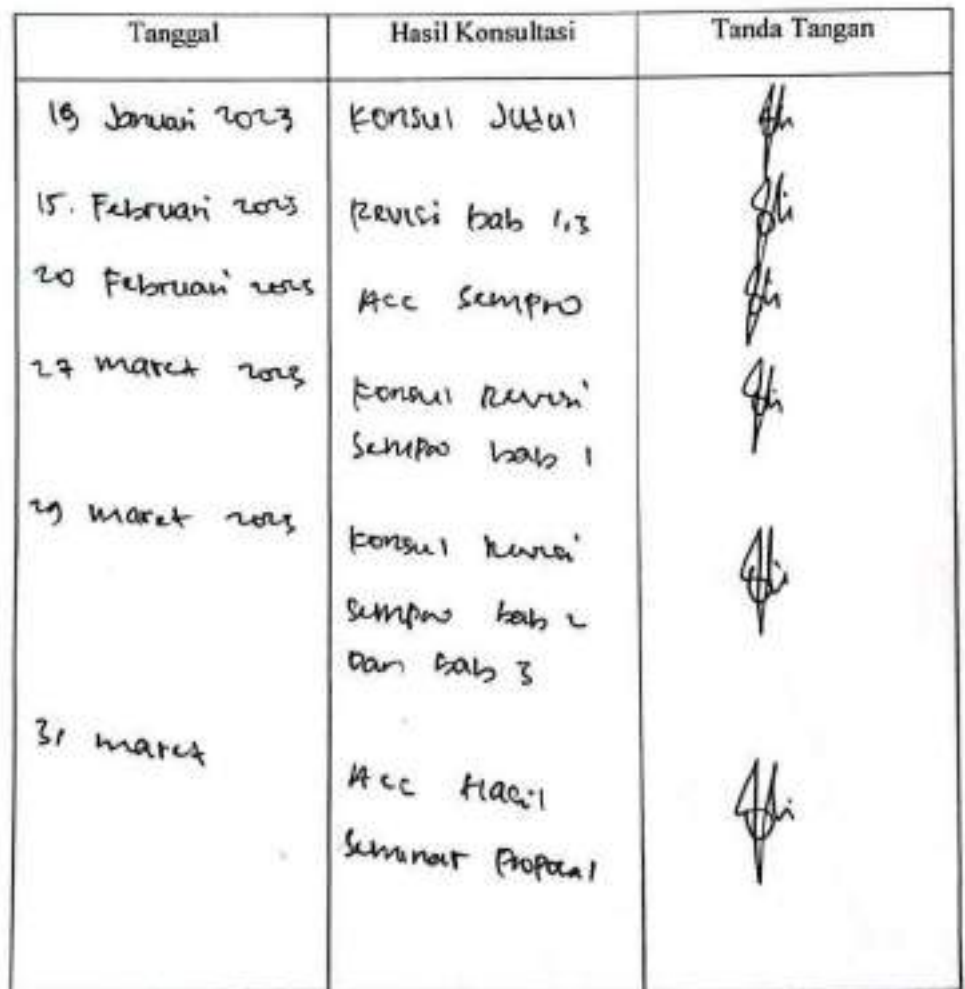 Tanggal Hasil Konsultasi Tanda Tangan
19 Januari 2023 Konsul Judul
15. Februari 2023 Revisi bab 1,3
20 Februari 2023 Acc Sempro
27 maret 2023 Konsul Revisi
Sempro bab 1
29 maret 2023 Konsul Revisi
Sempro bab 2
Dan Bab 3
31 maret Acc Hasil
Seminar Proposal